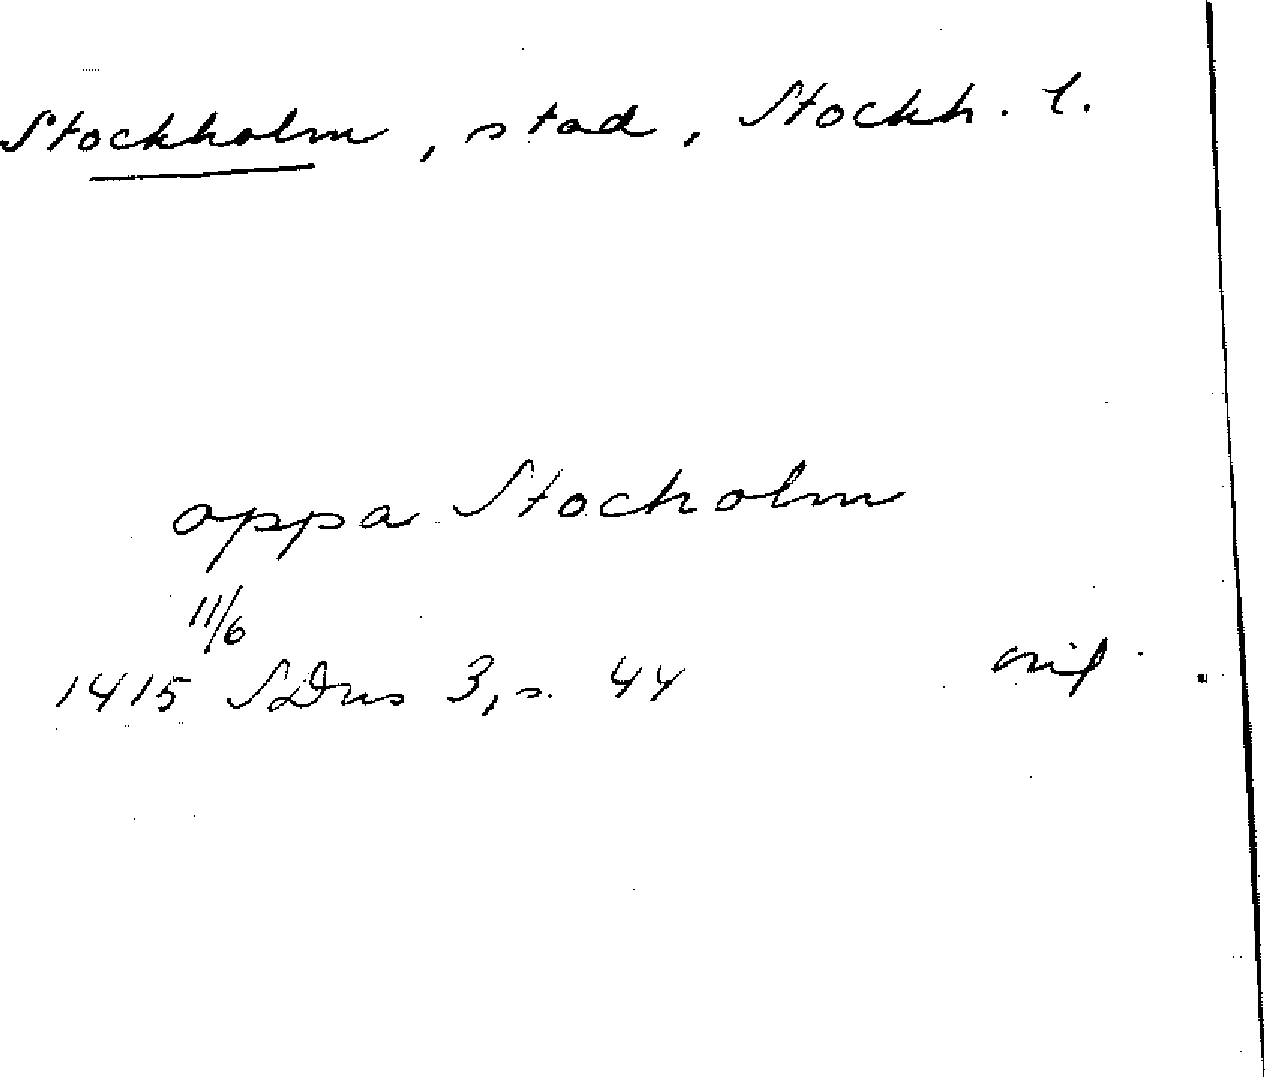 Stockholm, stad, Stockh. l.
oppa Stocholm
11/6
1415 SDns 3, s. 44